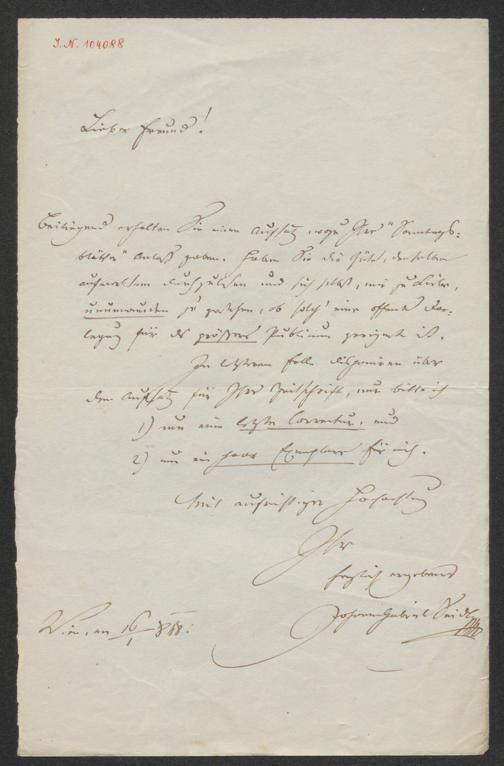 J. N. 104088
Lieber Freund!
Beiliegend erhalten Sie einen Aufsatz, wozu Ihre "Sonntags-
blätter" Anlaß gaben. Haben Sie die Güte, denselben
aufmerksam durchzulesen und sich selbst, mir zu Liebe,
unumwunden zu gestehen, ob solch' eine offene Dar-
legung für das größere Publicum geeignet ist.
Im letzteren Falle disponieren über
den Aufsatz für Ihre Zeitschrift, nur bitte ich
1) um eine letzte Correctur, und
2) um ein paar Exemplare für mich.
Mit aufrichtiger Hochachtung
Ihr
herzlich ergebener
Johann Gabriel Seidl
Wien, am 16/1